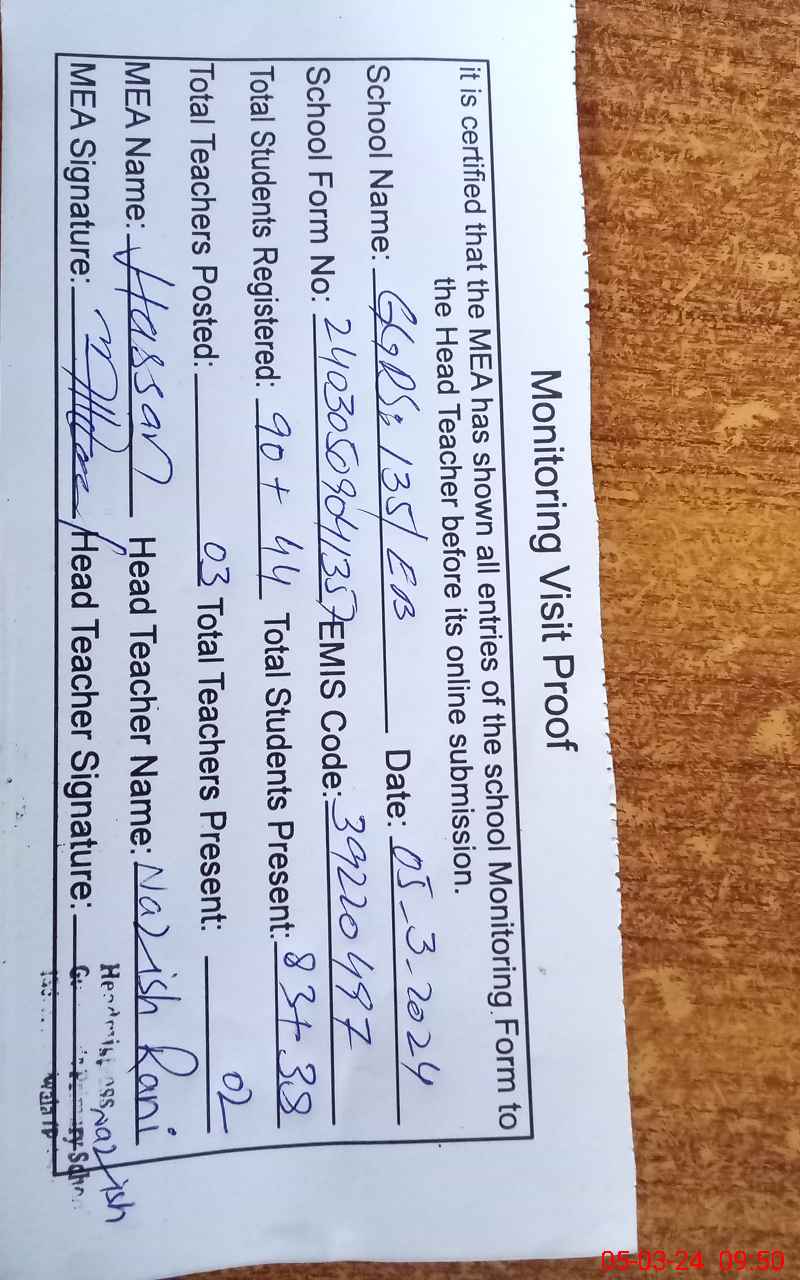 Monitoring Visit Proof
it is certified that the MEA has shown all entries of the school Monitoring Form to
the Head Teacher before its online submission.
School Name: GGPS: 135/EB Date: 05-3-2024
School Form No: 24030509041357 EMIS Code: 39220497
Total Students Registered: 90 + 44 Total Students Present: 83+38
Total Teachers Posted: 03 Total Teachers Present: 02
MEA Name: Hassan Head Teacher Name: Nazish Rani
MEA Signature: Head Teacher Signature: Nazish
05-03-24 09:50